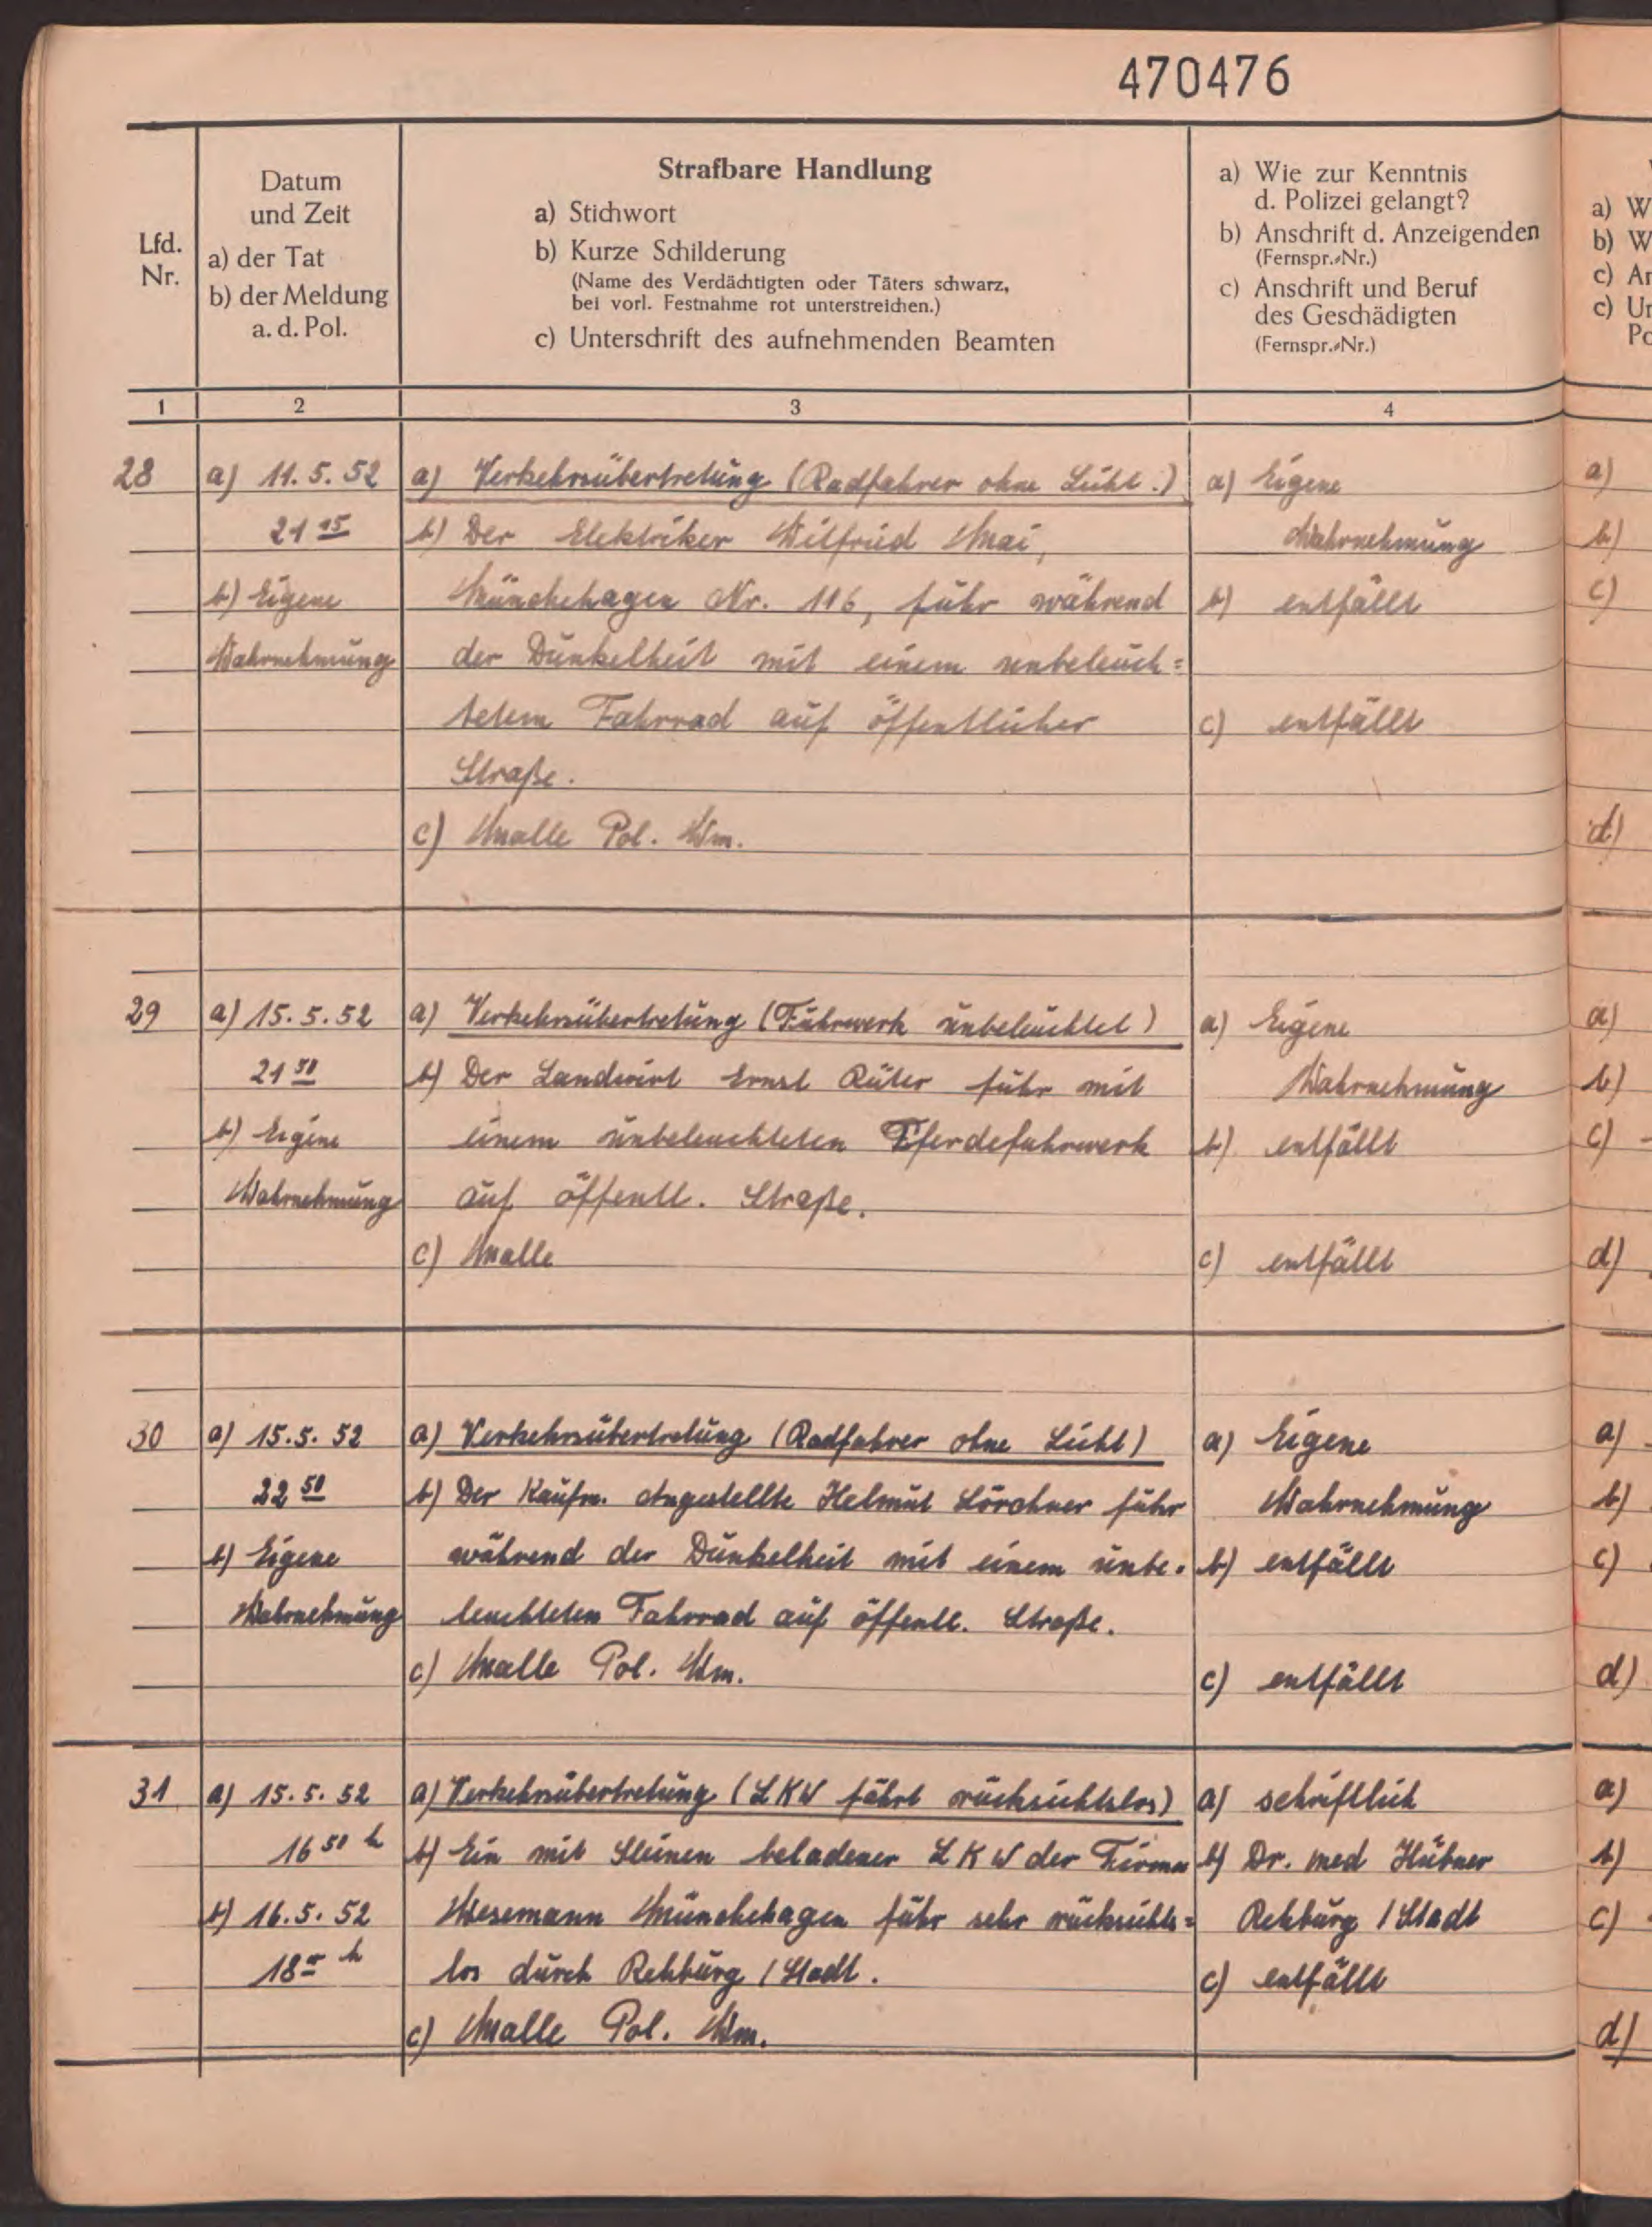 470476
Lfd.
Nr.
Datum
und Zeit
a) der Tat
b) der Meldung
a. d. Pol.
Strafbare Handlung
a) Stichwort
b) Kurze Schilderung
(Name des Verdächtigten oder Täters schwarz,
bei vorl. Festnahme rot unterstreichen.)
c) Unterschrift des aufnehmenden Beamten
a) Wie zur Kenntnis
d. Polizei gelangt?
b) Anschrift d. Anzeigenden
(Fernspr.-Nr.)
c) Anschrift und Beruf
des Geschädigten
(Fernspr.-Nr.)
1
2
3
4
28
a) 11. 5. 52
21 15
b) Eigene
Wahrnehmung
a) Verkehrsübertretung (Radfahrer ohne Licht.)
b) Der Elektriker Wilfried Mai,
Münchehagen Nr. 116, fuhr während
der Dunkelheit mit einem unbeleuch=
tetem Fahrrad auf öffentlicher
Straße.
c) Malle Pol. Wm.
a) Eigene
Wahrnehmung
b) entfällt
c) entfällt
29
a) 15. 5. 52
21 30
b) Eigene
Wahrnehmung
a) Verkehrsübertretung (Fuhrwerk unbeleuchtet)
b) Der Landwirt Ernst Rüter fuhr mit
einem unbeleuchteten Pferdefuhrwerk
auf öffentl. Straße.
c) Malle
a) Eigene
Wahrnehmung
b) entfällt
c) entfällt
30
a) 15. 5. 52
22 50
b) Eigene
Wahrnehmung
a) Verkehrsübertretung (Radfahrer ohne Licht)
b) Der Kaufm. Angestellte Helmut Lörchner fuhr
während der Dunkelheit mit einem unbe-
leuchteten Fahrrad auf öffentl. Straße.
c) Malle Pol. Wm.
a) Eigene
Wahrnehmung
b) entfällt
c) entfällt
31
a) 15. 5. 52
16 50 h
b) 16. 5. 52
18 h
a) Verkehrsübertretung (LKW fährt rücksichtslos)
b) Ein mit Steinen beladener LKW der Firma
Wesemann Münchehagen fuhr sehr rücksichts=
los durch Rehburg / Stadt.
c) Malle Pol. Wm.
a) schriftlich
b) Dr. med Hübner
Rehburg / Stadt
c) entfällt